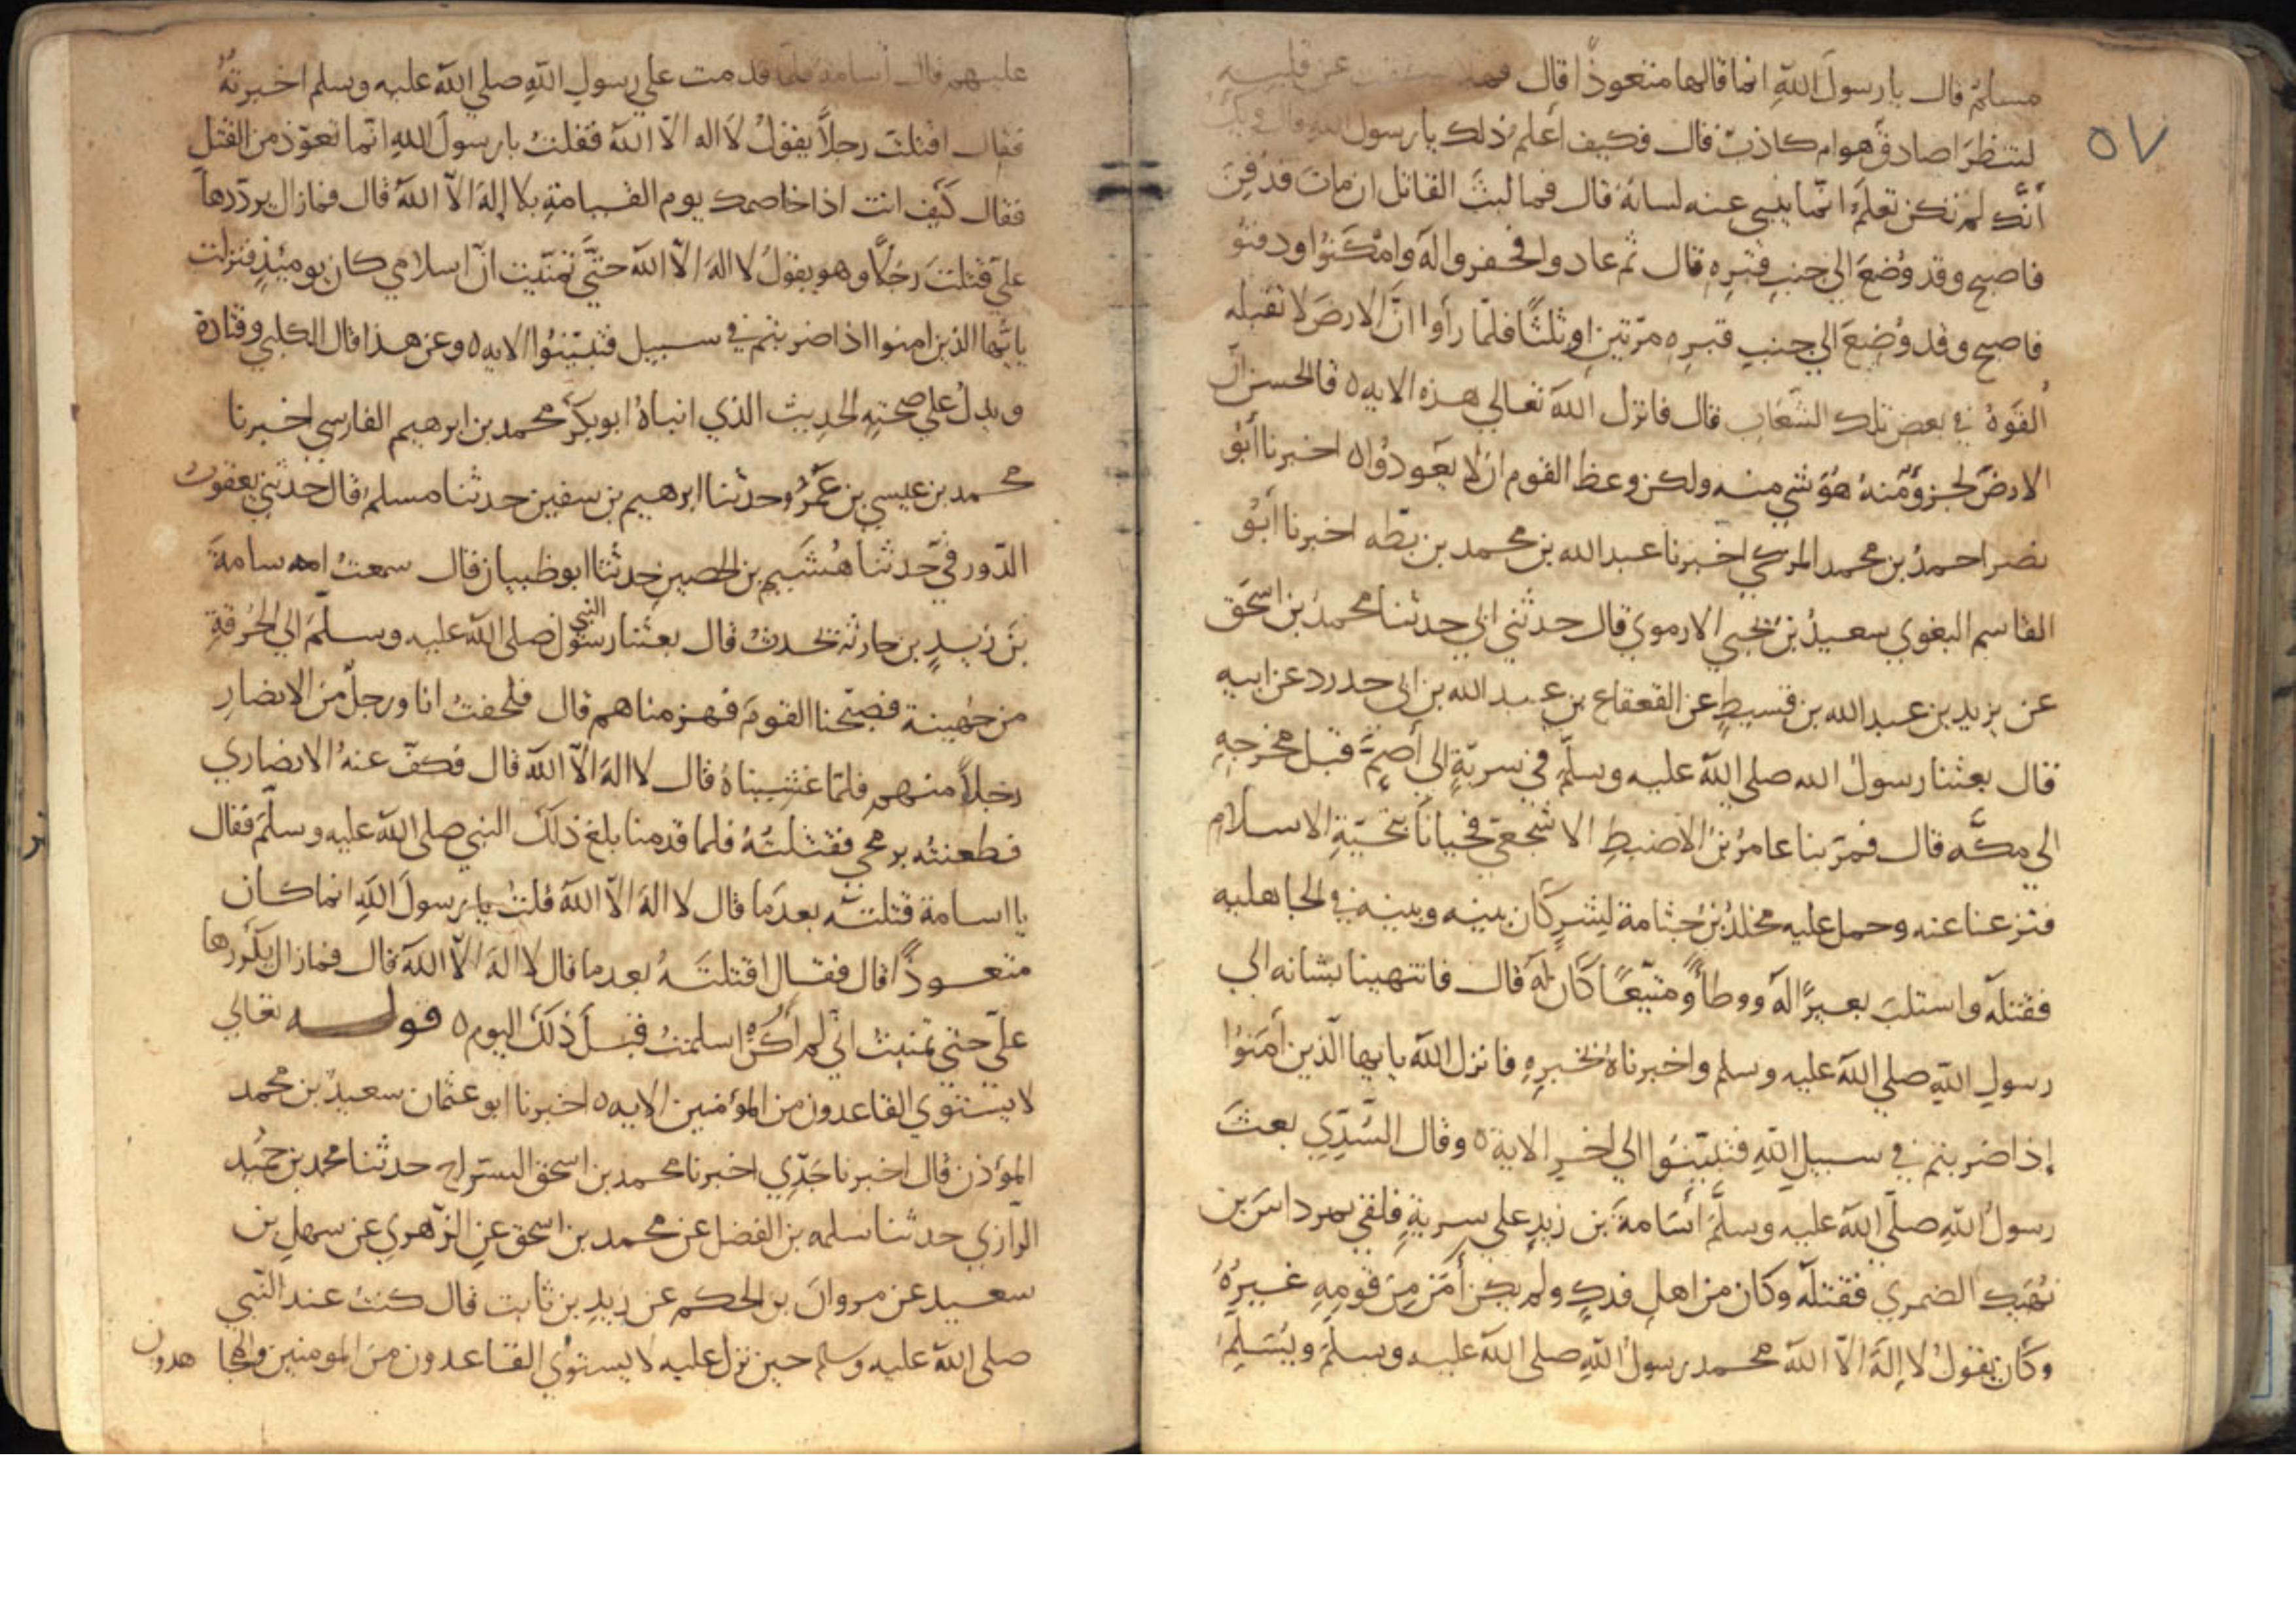 ٥٧
مسلم قال يا رسول الله انما قالها متعوذا قال فهلا شققت عن قلبه
لتنظر اصادق هو ام كاذب قال فكيف أعلم ذلك يا رسول الله قال ويك
أنك لم تكن تعلم انما يبي عنه لسانه قال فما لبث القاتل ان مات فدفن
فاصبح وقد وضع الي جنب قبره قال ثم عادوا فحفروا له وامكنوا ودفنو
فاصبح وقد وضع الي جنب قبره مرتين او ثلثا فلما رأوا ان الارض لا تقبله
القوه في بعض تلك الشعاب قال فانزل الله تعالي هذه الايه ٥ قال الحسن ان
الارض لجز ومنه هو شي منه ولكن وعظ القوم ان لا يعودوا ٥ اخبرنا أبو
نصر احمد بن محمد المزكي اخبرنا عبد الله بن محمد بن بطه اخبرنا أبو
القاسم البغوي سعيد بن يحيي الارموي قال حدثني ابي حدثنا محمد بن اسحق
عن يزيد بن عبد الله بن قسيط عن القعقاع بن عبد الله بن ابي حدرد عن ابيه
قال بعثنا رسول الله صلي الله عليه وسلم في سرية الي أضم قبل مخرجه
الي مكه قال فمر بنا عامر بن الاضبط الاشجعي فحيانا بتحية الاسلام
فنزعنا عنه وحمل عليه مخلد بن جثامة لشر كان بينه وبينه في الجاهليه
فقتله واستلب بعيرا له ووطأ ومتيعا كان له قال فانتهينا بشانه الي
رسول الله صلي الله عليه وسلم واخبرناه بخبره فانزل الله يا يها الذين أمنوا
إذا ضربتم في سبيل الله فتبينوا الي اخر الاية ٥ وقال السدي بعث
رسول الله صلي الله عليه وسلم أسامة بن زيد علي سرية فلقي مرداس بن
نهيك الضمري فقتله وكان من اهل فدك ولم يكن أمن من قومه غيره
وكان يقول لا إله الا الله محمد رسول الله صلي الله عليه وسلم ويسلم
عليهم قال أسامة فلما قدمت علي رسول الله صلي الله عليه وسلم اخبرته
فقال اقتلت رجلا يقول لا اله الا الله فقلت يا رسول الله انما تعوذ من القتل
فقال كيف انت اذا خاصمك يوم القيامة بلا إله الا الله قال فما زال يرددها
علي قتلت رجلا وهو يقول لا اله الا الله حتي تمنيت ان اسلامي كان يوميذ فنزلت
يا يها الذين امنوا اذا ضربتم في سبيل فتبينوا الايه ٥ وعن هذا قال الكلبي وقتادة
ويدل علي صحته الحديث الذي انباه ابو بكر محمد بن ابرهيم الفارسي اخبرنا
محمد بن عيسي بن عمرو حدثنا ابرهيم بن سفين حدثنا مسلم قال حدثني يعقوب
الدورقي حدثنا هشيم بن الحصين حدثنا ابو ظبيان قال سمعت اسامة
بن زيد بن حارثة تحدث قال بعثنا رسول النبي صلي الله عليه وسلم الي الحرقة
من جهينة فصبحنا القوم فهزمناهم قال فلحقت انا ورجل من الانصار
رجلا منهم فلما غشيناه قال لا اله الا الله قال فكف عنه الانصاري
فطعنته برمحي فقتلته فلما قدمنا بلغ ذلك النبي صلي الله عليه وسلم فقال
يا اسامة قتلته بعد ما قال لا اله الا الله قلت يا رسول الله انما كان
متعوذا قال فقال اقتلته بعد ما قال لا اله الا الله قال فما زال يكررها
علي حتي تمنيت اني لم أكن اسلمت قبل ذلك اليوم ٥ قوله تعالي
لا يستوي القاعدون من المؤمنين الايه ٥ اخبرنا ابو عثمان سعيد بن محمد
المؤذن قال اخبرنا جدي اخبرنا محمد بن اسحق السراج حدثنا محمد بن حميد
الرازي حدثنا سلمه بن الفضل عن محمد بن اسحق عن الزهري عن سهل بن
سعيد عن مروان بن الحكم عن زيد بن ثابت قال كنت عند النبي
صلي الله عليه وسلم حين نزل عليه لا يستوي القاعدون من المومنين والمجاهدون